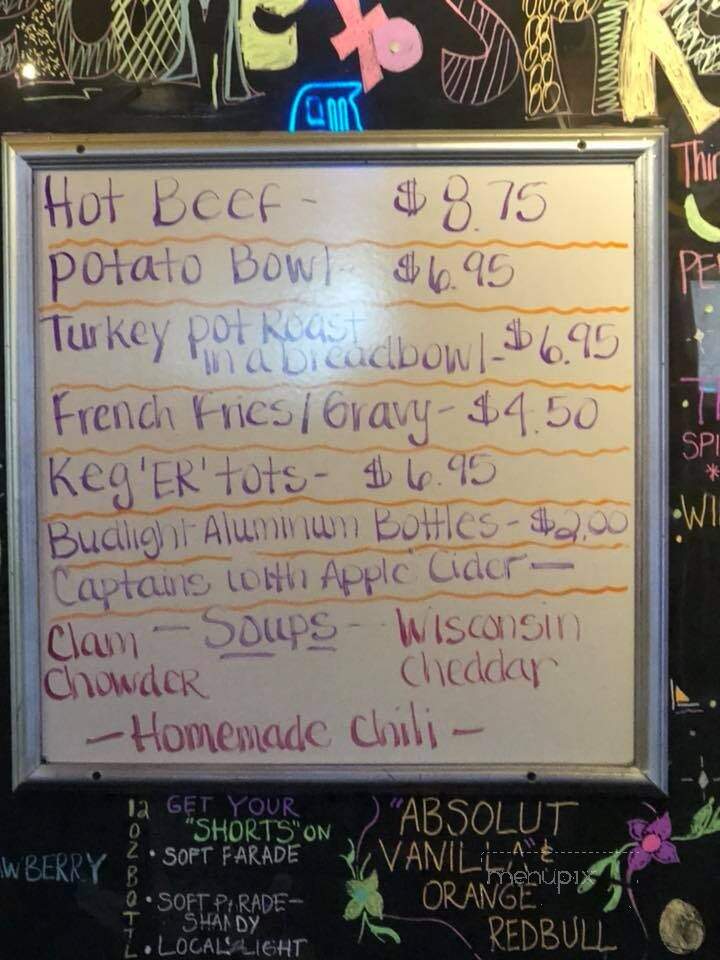 Hot Beef - $8.75
Potato Bowl - $6.95
Turkey Pot Roast
in a breadbowl - $6.95
French Fries / Gravy - $4.50
Keg'ER' tots - $6.95
Budlight Aluminum Bottles - $2.00
Captains with Apple Cider —
— Soups -
Clam
Chowder
Wisconsin
Cheddar
— Homemade Chili —
12 OZ BOTTL
GET YOUR
"SHORTS" ON
• SOFT PARADE
• SOFT PARADE-
SHANDY
• LOCAL'S LIGHT
"ABSOLUT
VANILLA" &
ORANGE
REDBULL
menupix
WBERRY
Thir
PE
SPI
WI